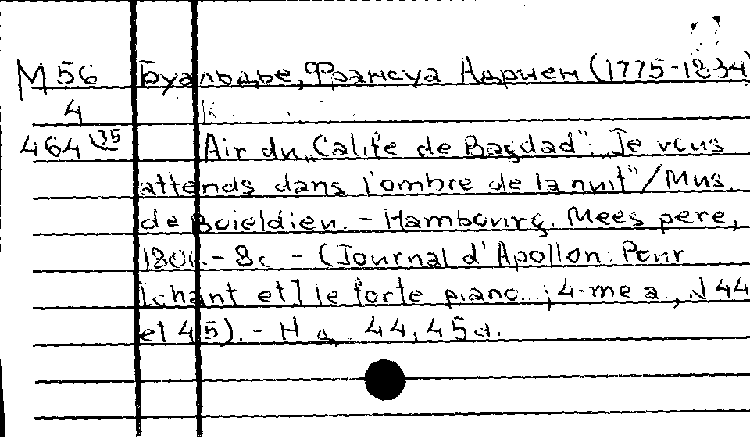 М 56 Буальдье, Франсуа Адриен (1775-1834)
4
464 35 Air du „Calife de Bagdad": „Je vous
attends dans l'ombre de la nuit"/Mus.
de Boieldieu. - Hambourg. Mees pere,
180 . - 8с. - (Journal d'Apollon. Pour
[chant et] le forte piano. ; 4-me a., №44
et 45). - Н. д. 44, 45а.